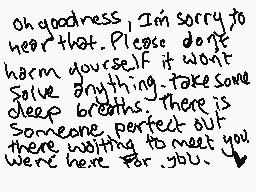 oh goodness, I'm sorry to
hear that. Please don't
harm yourself it won't
solve anything. take some
deep breaths. There is
someone perfect out
there waiting to meet you.
We're here for you.